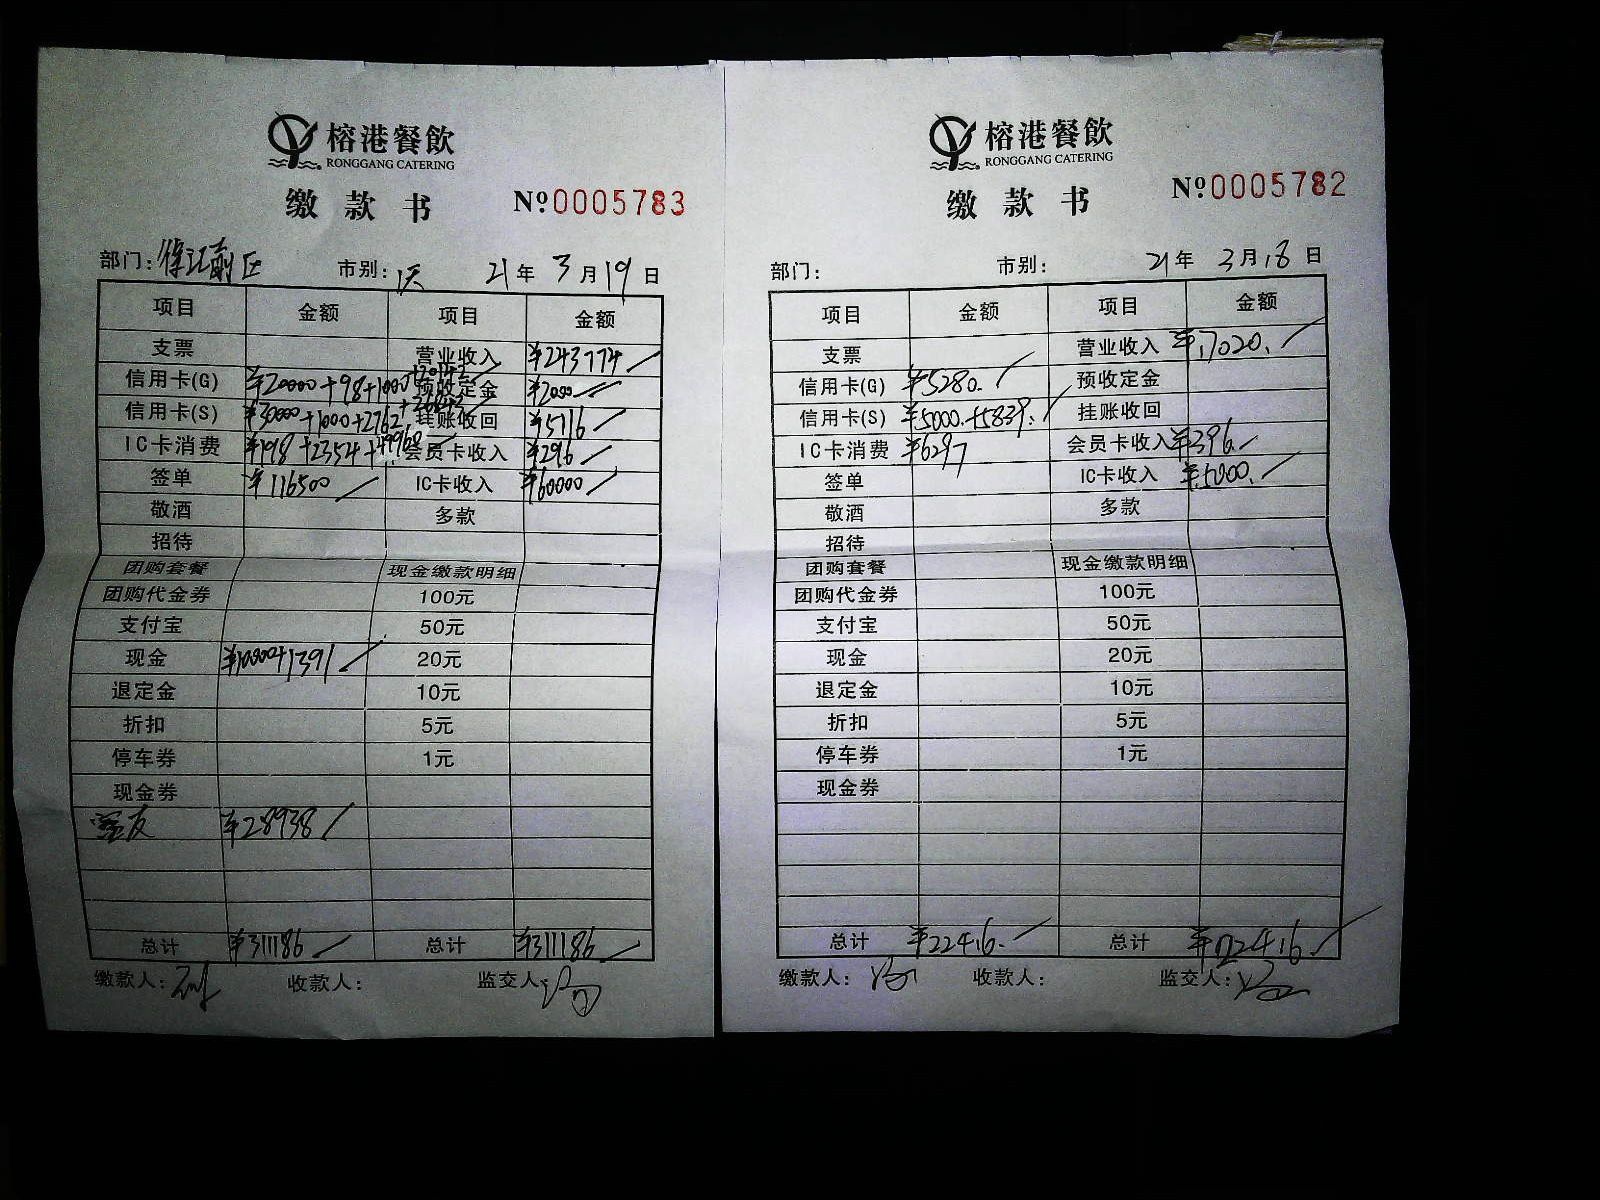 榕港餐飲
RONGGANG CATERING
缴款书 №0005783
部门: 市别: 21年3月19日
项目 金额 项目 金额
支票 营业收入 ¥243774
信用卡(G) ¥20000+98+1000 预收定金 ¥2000
信用卡(S) ¥30000+1000+2762 挂账收回 ¥5116
IC卡消费 ¥198+2354+49960 会员卡收入 ¥296
签单 ¥116500 IC卡收入 ¥60000
敬酒 多款
招待
团购套餐 现金缴款明细
团购代金券 100元
支付宝 50元
现金 ¥10000+1391 20元
退定金 10元
折扣 5元
停车券 1元
现金券
¥28938
总计 ¥311186 总计 ¥311186
缴款人: 收款人: 监交人:
榕港餐飲
RONGGANG CATERING
缴款书 №0005782
部门: 市别: 21年3月18日
项目 金额 项目 金额
支票 营业收入 ¥17020.
信用卡(G) ¥5280. 预收定金
信用卡(S) ¥5000.+5839. 挂账收回
IC卡消费 ¥6297 会员卡收入 ¥396.
签单 IC卡收入 ¥5000.
敬酒 多款
招待
团购套餐 现金缴款明细
团购代金券 100元
支付宝 50元
现金 20元
退定金 10元
折扣 5元
停车券 1元
现金券
总计 ¥22416. 总计 ¥22416.
缴款人: 收款人: 监交人: